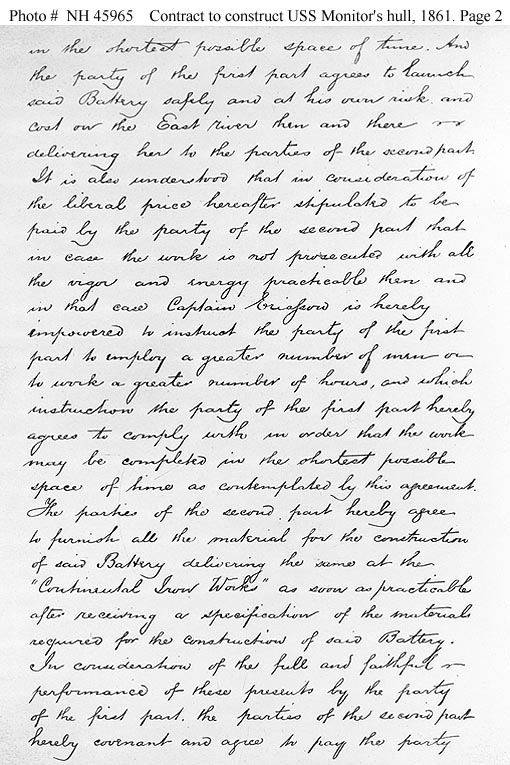 Photo # NH 45965 Contract to construct USS Monitor's hull, 1861. Page 2
in the shortest possible space of time. And
the party of the first part agrees to launch
said Battery safely and at his own risk and
cost on the East river then and there
delivering her to the parties of the second part.
It is also understood that in consideration of
the liberal price hereafter stipulated to be
paid by the party of the second part that
in case the work is not prosecuted with all
the vigor and energy practicable then and
in that case Captain Ericsson is hereby
empowered to instruct the party of the first
part to employ a greater number of men or
to work a greater number of hours, and which
instruction the party of the first part hereby
agrees to comply with in order that the work
may be completed in the shortest possible
space of time as contemplated by this agreement.
The parties of the second part hereby agree
to furnish all the material for the construction
of said Battery delivering the same at the
"Continental Iron Works" as soon as practicable
after receiving a specification of the materials
required for the construction of said Battery.
In consideration of the full and faithful
performance of these presents by the party
of the first part, the parties of the second part
hereby covenant and agree to pay the party